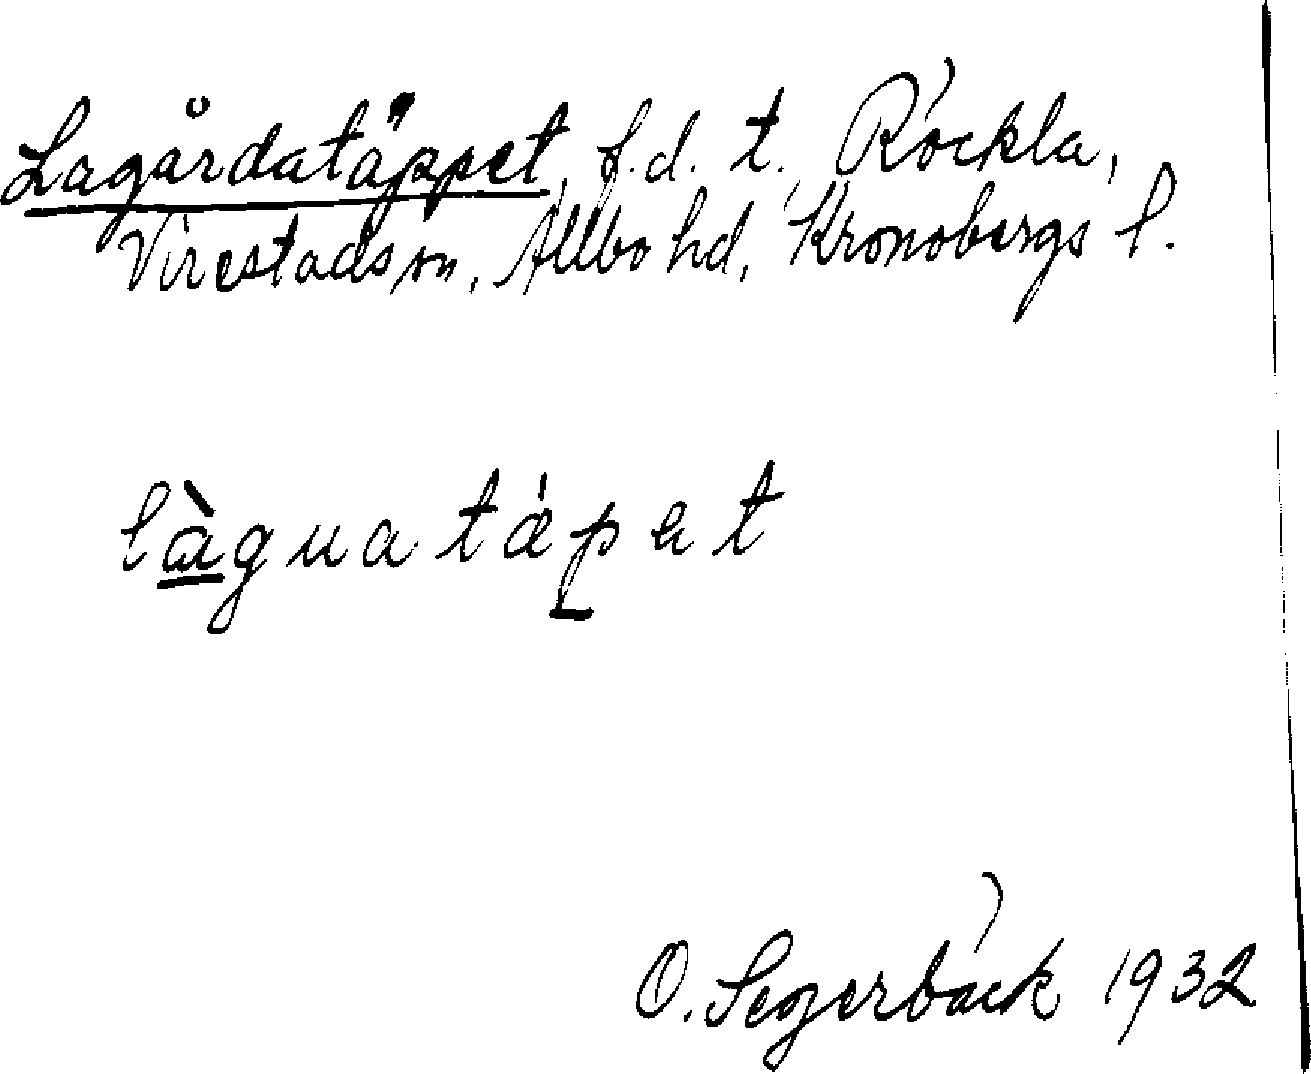 Lagårdatäppet, f.d. t. Röckla,
Virestads sn, Allbo hd, Kronobergs l.
làguatǽpat
O. Segerbäck 1932